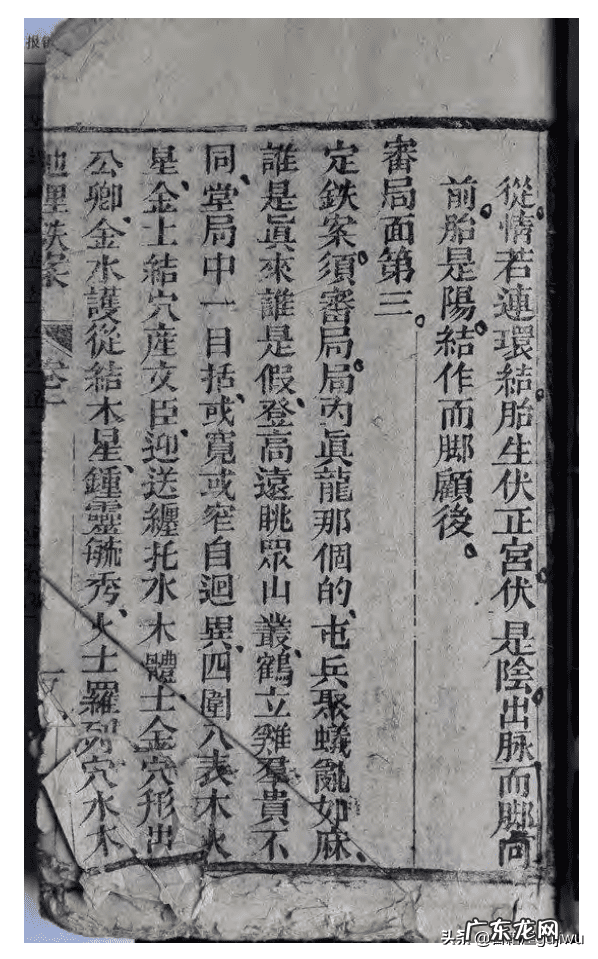 從情若連環結胎生伏正宮伏是陰出脉而脚向
前胎是陽結作而脚顧後
審局面第三
定鉄案須審局局內眞龍那個的屯兵聚蟻亂如麻
誰是眞來誰是假登高遠眺眾山叢鶴立雞羣貴不
同堂局中一目括或寬或窄自迴異四圍八表木火
星金土結穴産文臣迎送纏托水木體土金穴形出
公卿金水護從結木星鍾靈毓秀火土羅列穴水木
地理鉄案 卷一
报
广东龙网
头条